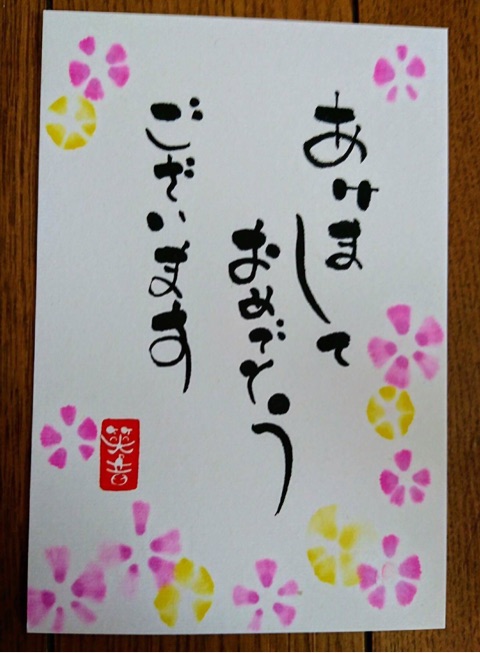 あけまして
おめでとう
ございます
笑音